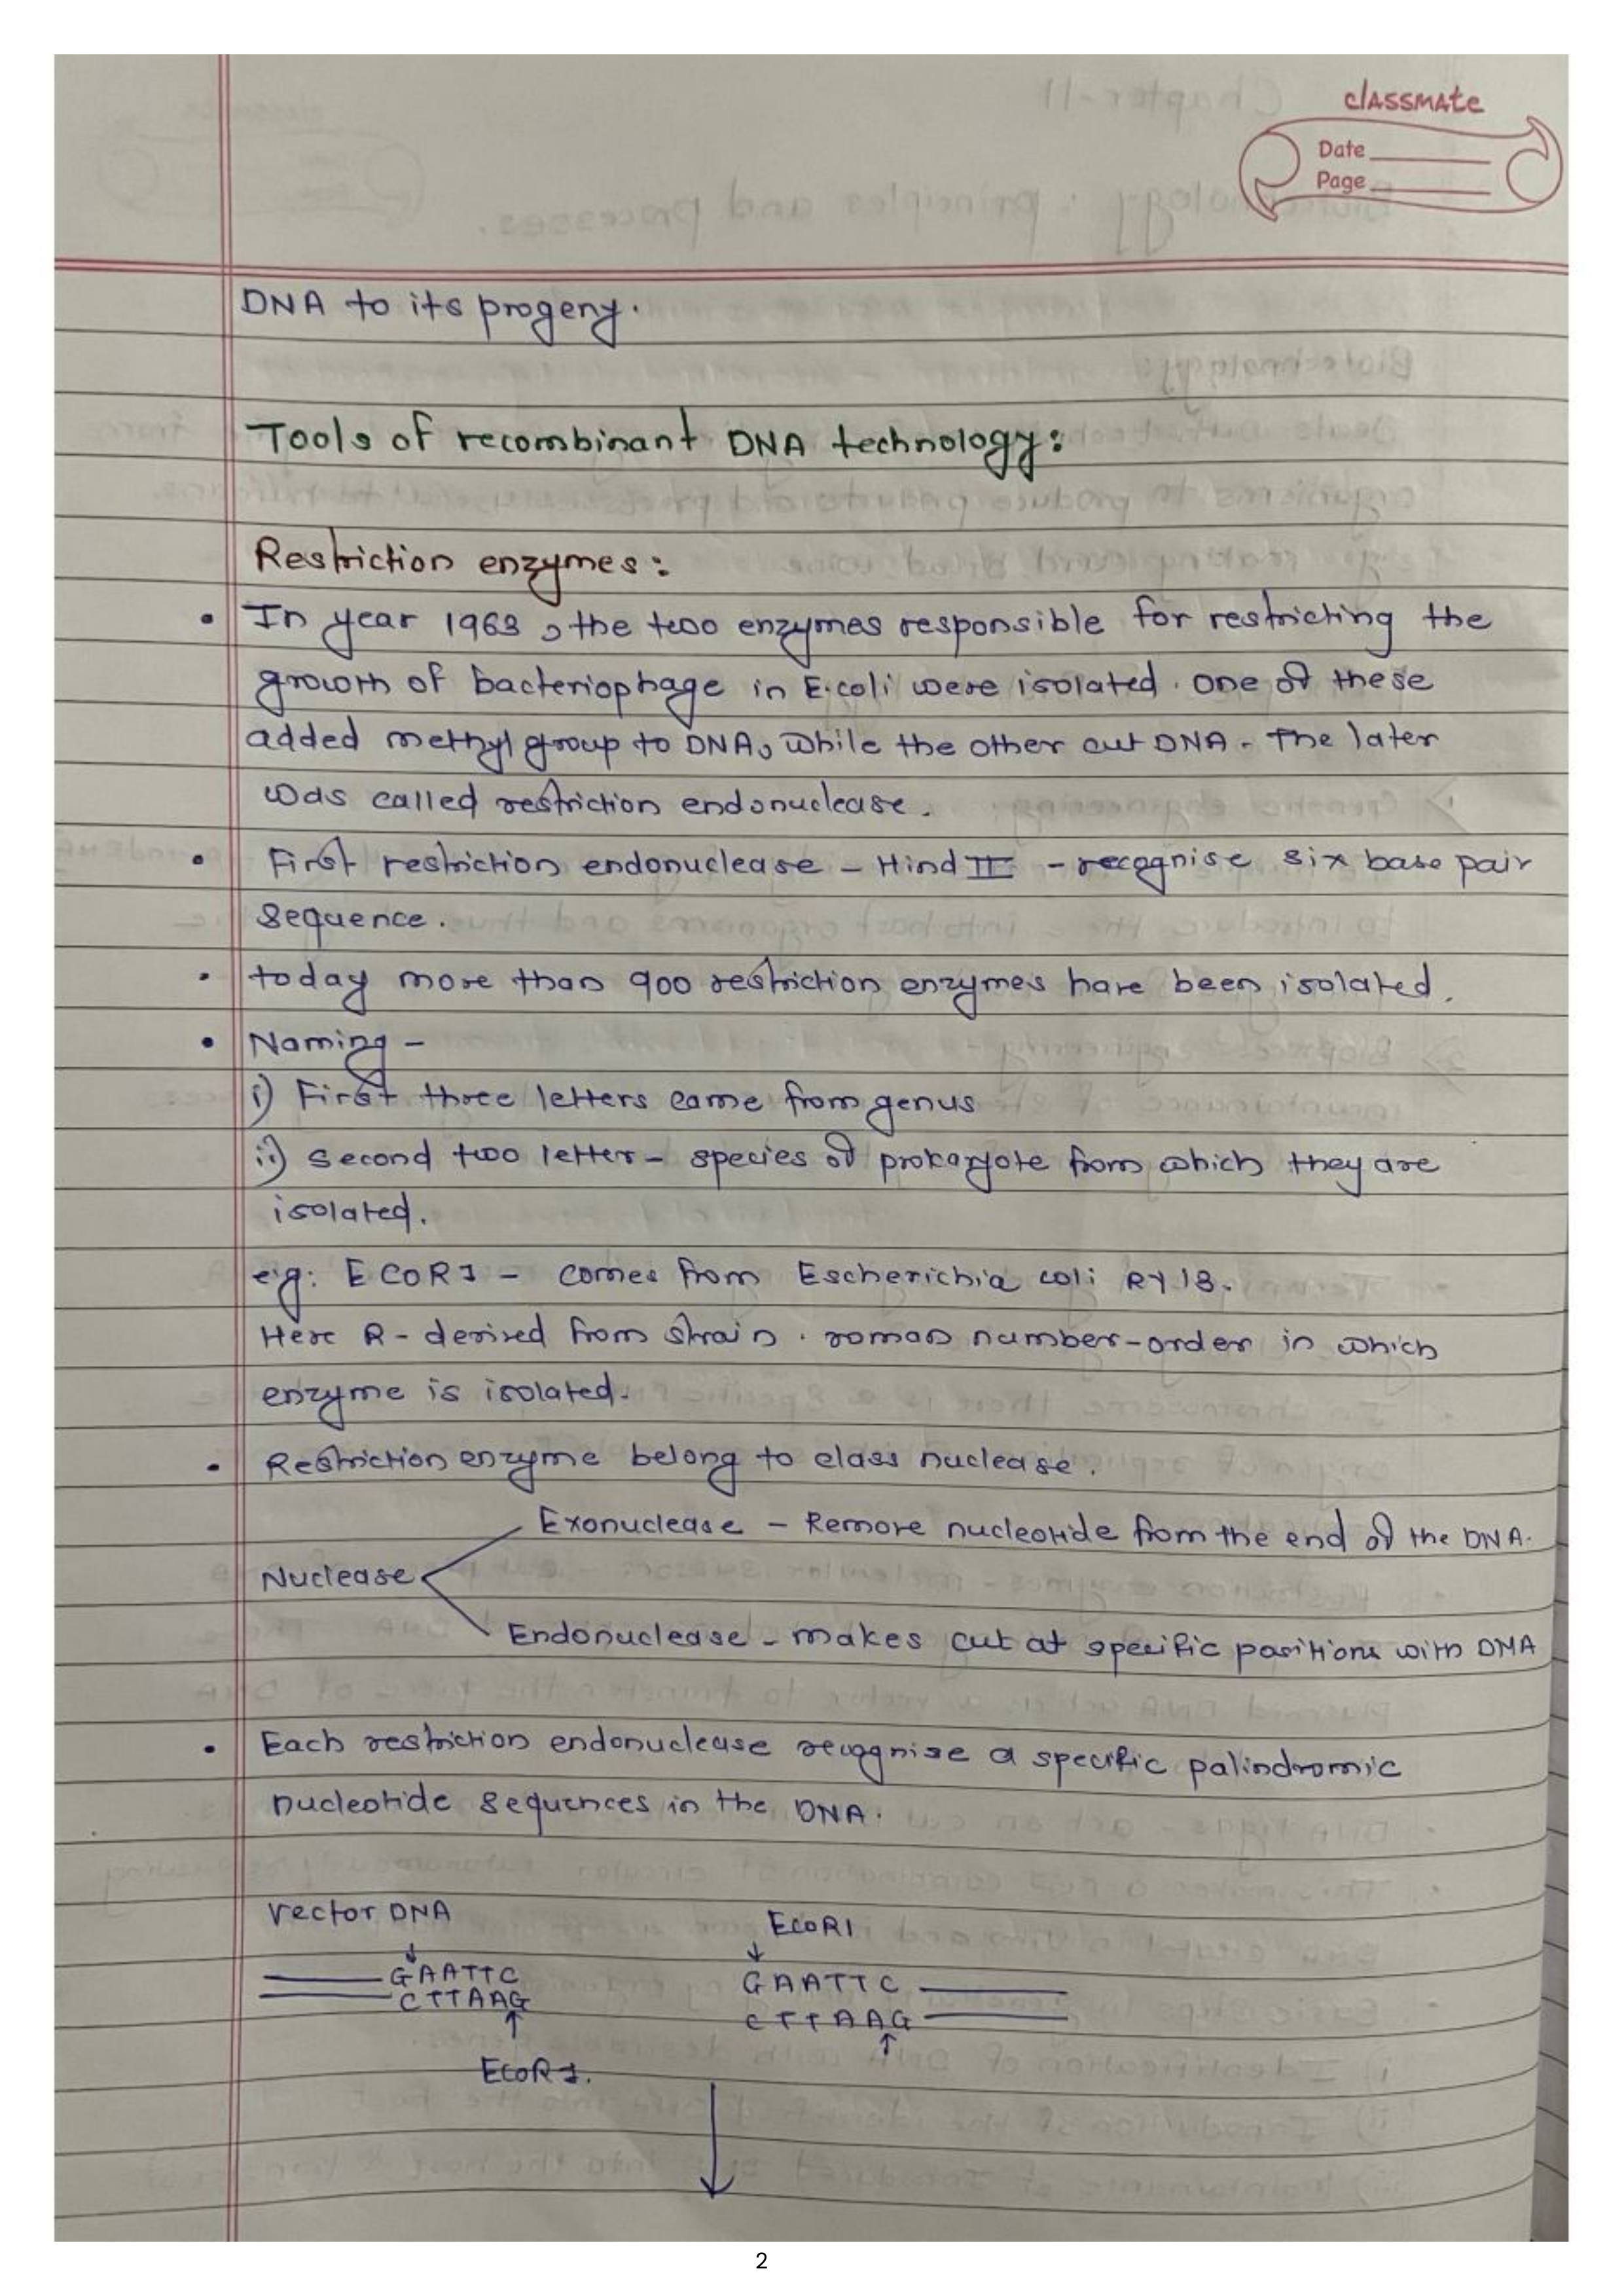 classmate
Date
Page
DNA to its progeny.
Tools of recombinant DNA technology:
Restriction enzymes:
• In year 1963, the two enzymes responsible for restricting the
growth of bacteriophage in E.coli were isolated. One of these
added methyl group to DNA, while the other cut DNA. The later
was called restriction endonuclease.
• First restriction endonuclease - Hind II - recognise six base pair
sequence.
• today more than 900 restriction enzymes have been isolated.
• Naming -
i) First three letters came from genus
ii) second two letter - species of prokaryote from which they are
isolated.
eg: ECORI - comes from Escherichia coli RY 13.
Here R - derived from strain. roman number-order in which
enzyme is isolated.
• Restriction enzyme belong to class nuclease.
Exonuclease - Remove nucleotide from the end of the DNA.
Nuclease
Endonuclease - makes cut at specific positions with DNA
• Each restriction endonuclease recognise a specific palindromic
nucleotide sequences in the DNA.
vector DNA EcoRI
GAATTC GAATTC
CTTAAG CTTAAG
EcoRI.
2